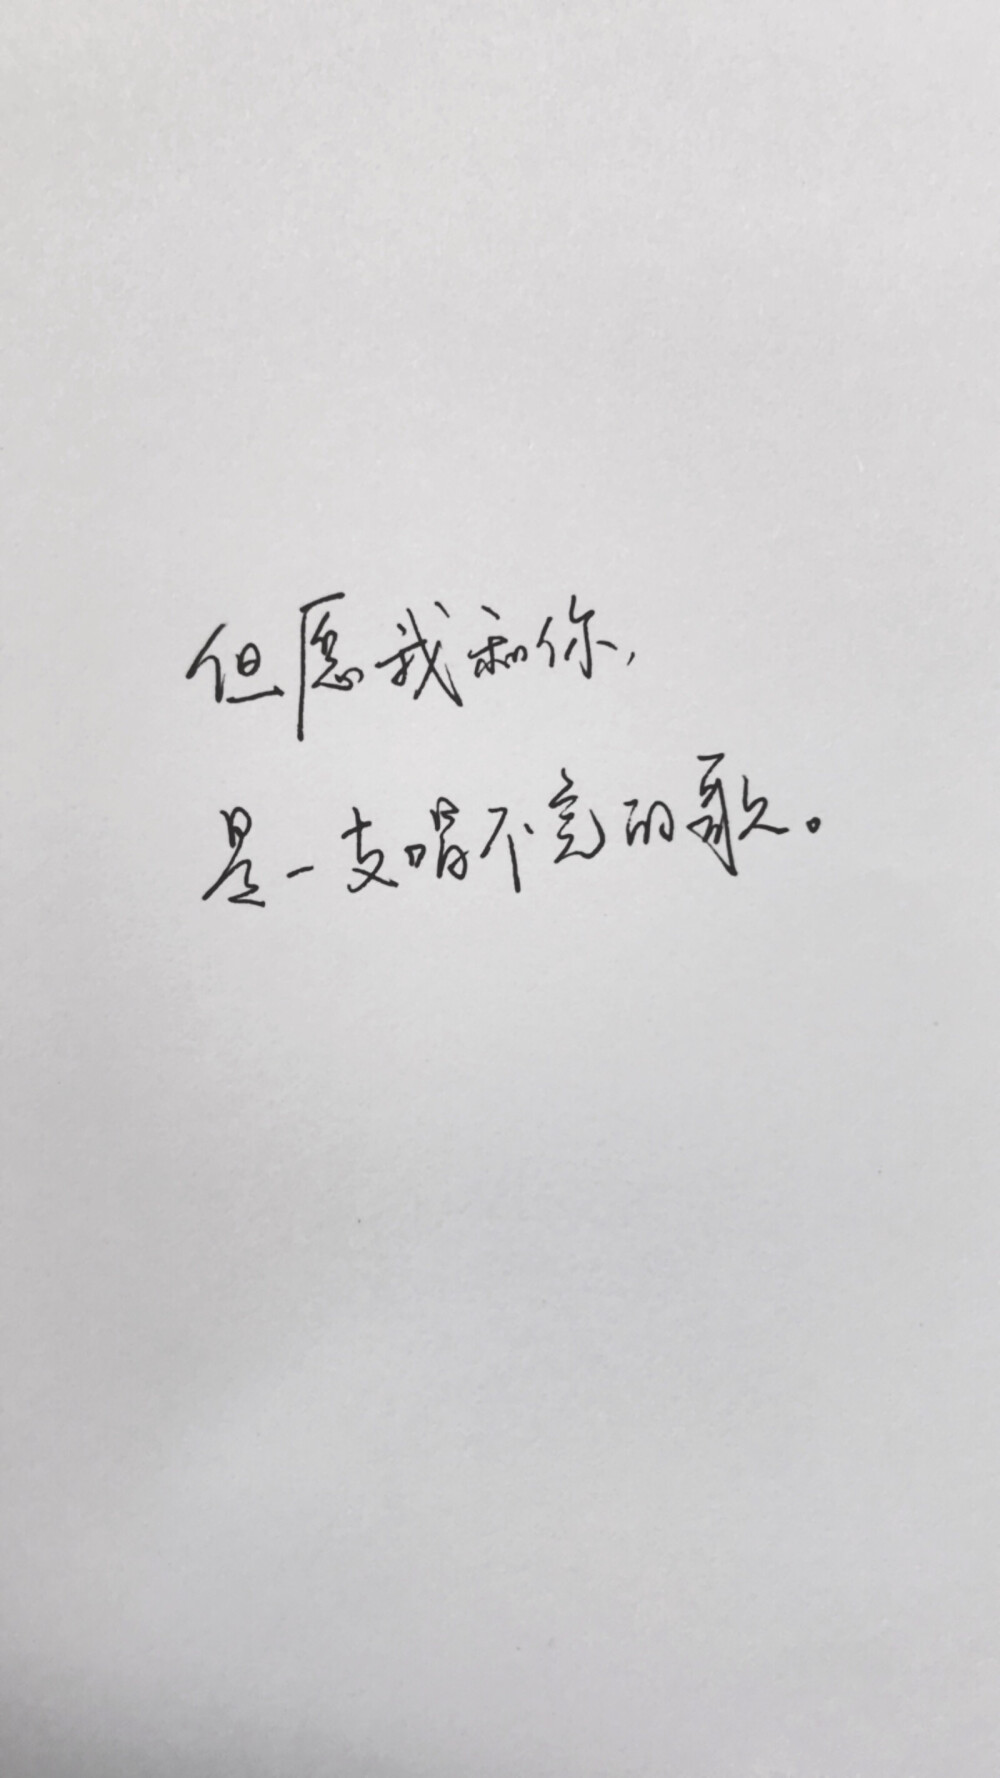 但愿我和你，
是一支唱不完的歌。